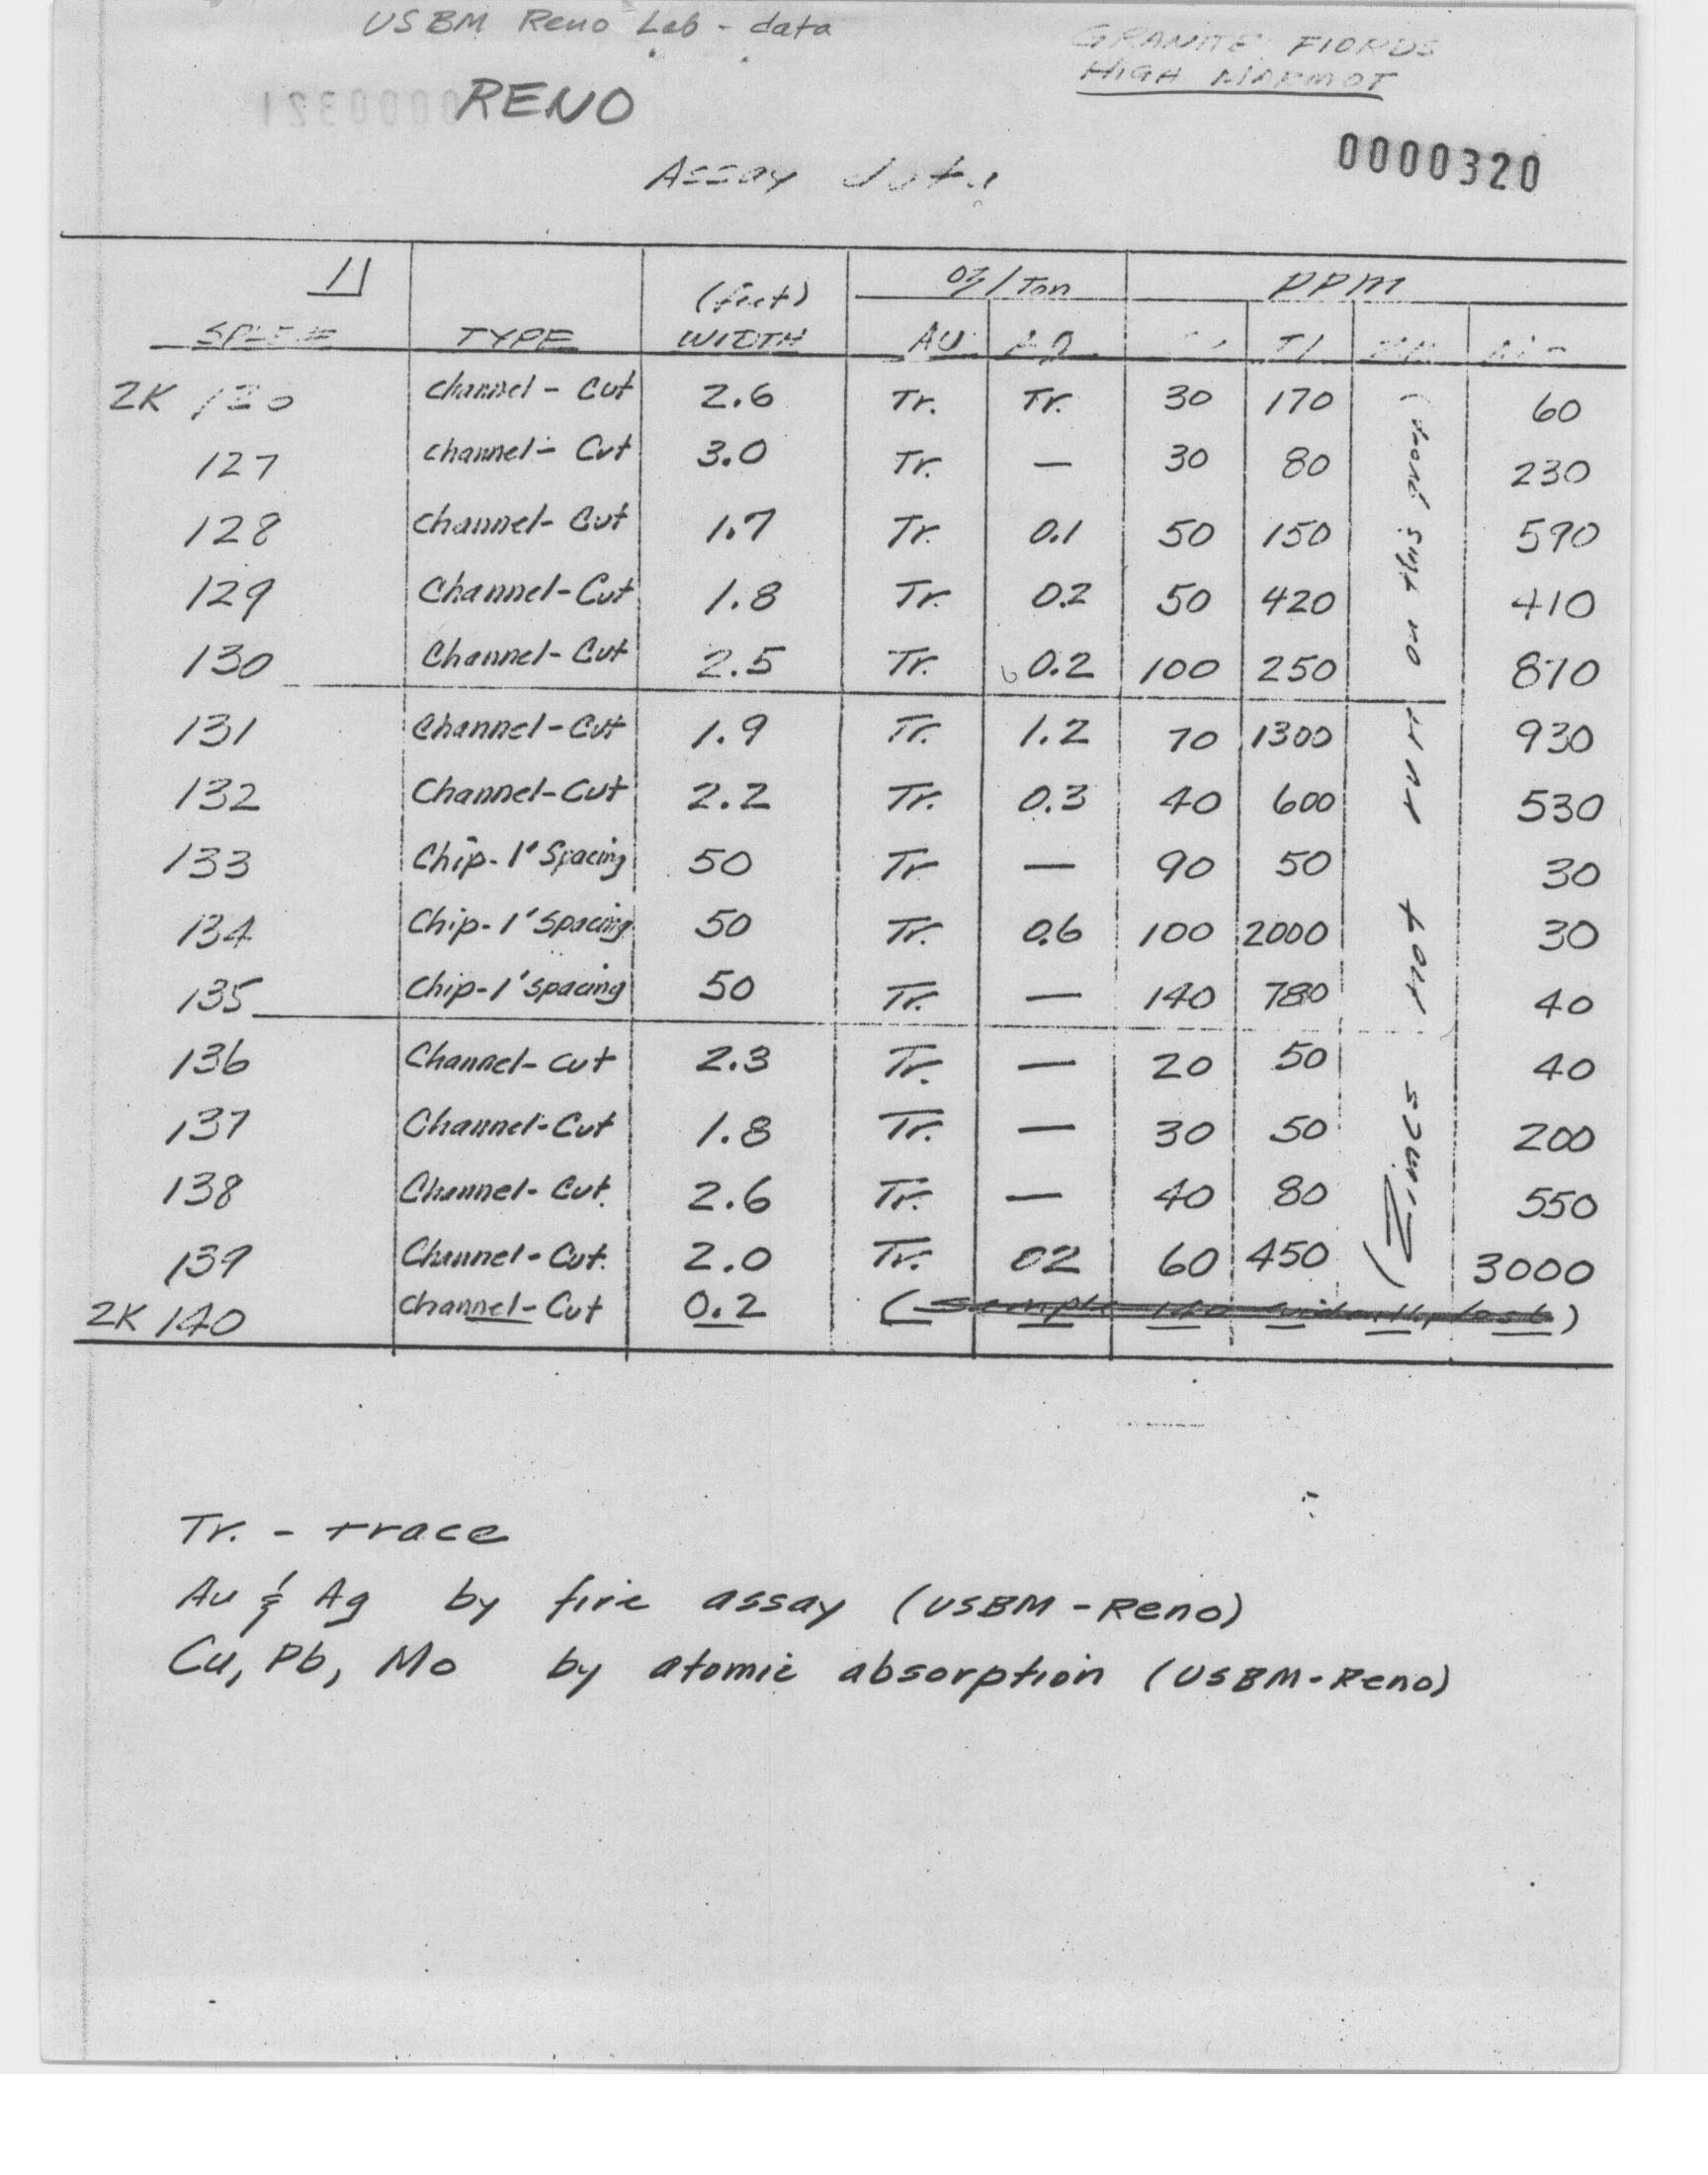 USBM Reno Lab - data
GRANITE FIORDS
HIGH MARMOT
RENO
0000320
Assay data
1/
oz/Ton PPM
(feet)
SPLE TYPE WIDTH AU
2K channel - Cut 2.6 Tr. Tr. 30 170 60
127 channel - Cut 3.0 Tr. — 30 80 230
128 channel - Cut 1.7 Tr. 0.1 50 150 590
129 Channel - Cut 1.8 Tr. 0.2 50 420 410
130 Channel - Cut 2.5 Tr. 0.2 100 250 870
131 Channel - Cut 1.9 Tr. 1.2 70 1300 930
132 Channel - Cut 2.2 Tr. 0.3 40 600 530
133 Chip - 1' Spacing 50 Tr — 90 50 30
134 Chip - 1' Spacing 50 Tr. 0.6 100 2000 30
135 Chip - 1' spacing 50 Tr. — 140 780 40
136 Channel - cut 2.3 Tr. — 20 50 40
137 Channel - Cut 1.8 Tr. — 30 50 200
138 Channel - Cut. 2.6 Tr. — 40 80 550
139 Channel - Cut. 2.0 Tr. 02 60 450 3000
2K 140 channel - Cut 0.2 (sample 140 evidently lost)
(Zinc s not run on this group)
Tr. - trace
Au & Ag by fire assay (USBM - Reno)
Cu, Pb, Mo by atomic absorption (USBM - Reno)